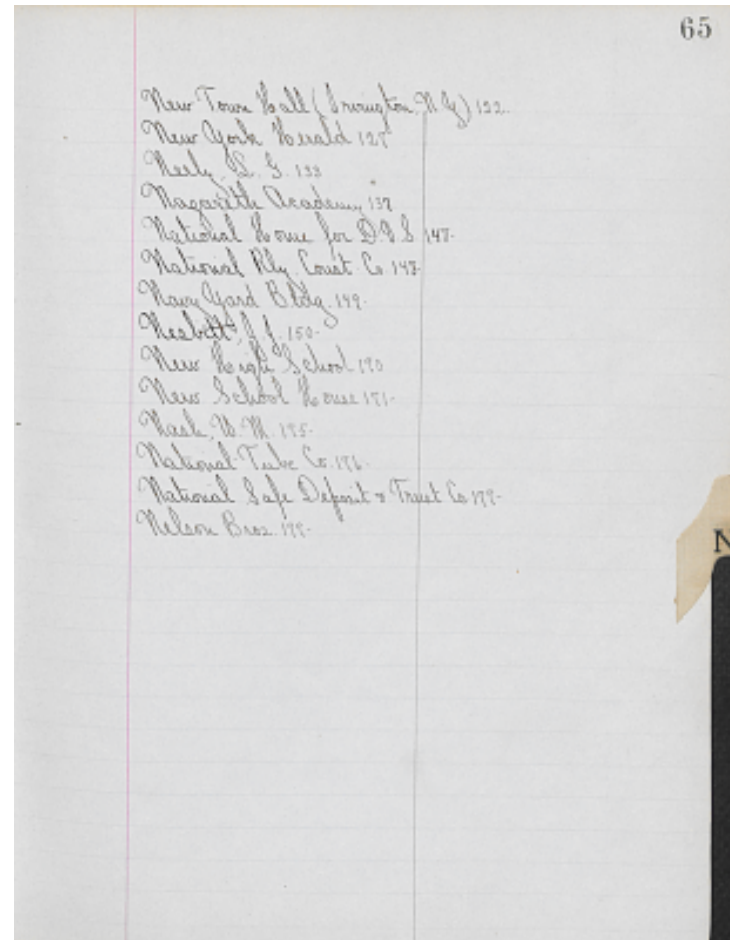 65
New Town Hall (Irvington, N.Y.) 122.
New York Herald 127
Neely, 133
Nazareth Academy 137
National Home for D.V.S. 147.
National Rly. Const. Co. 148
Navy Yard Bldg. 149.
Nesbett, J. J. 150.
New High School 170
New School House 171.
Nash, W. M. 175.
National Tube Co. 176.
National Safe Deposit & Trust Co 177.
Nelson Bros. 177.
N